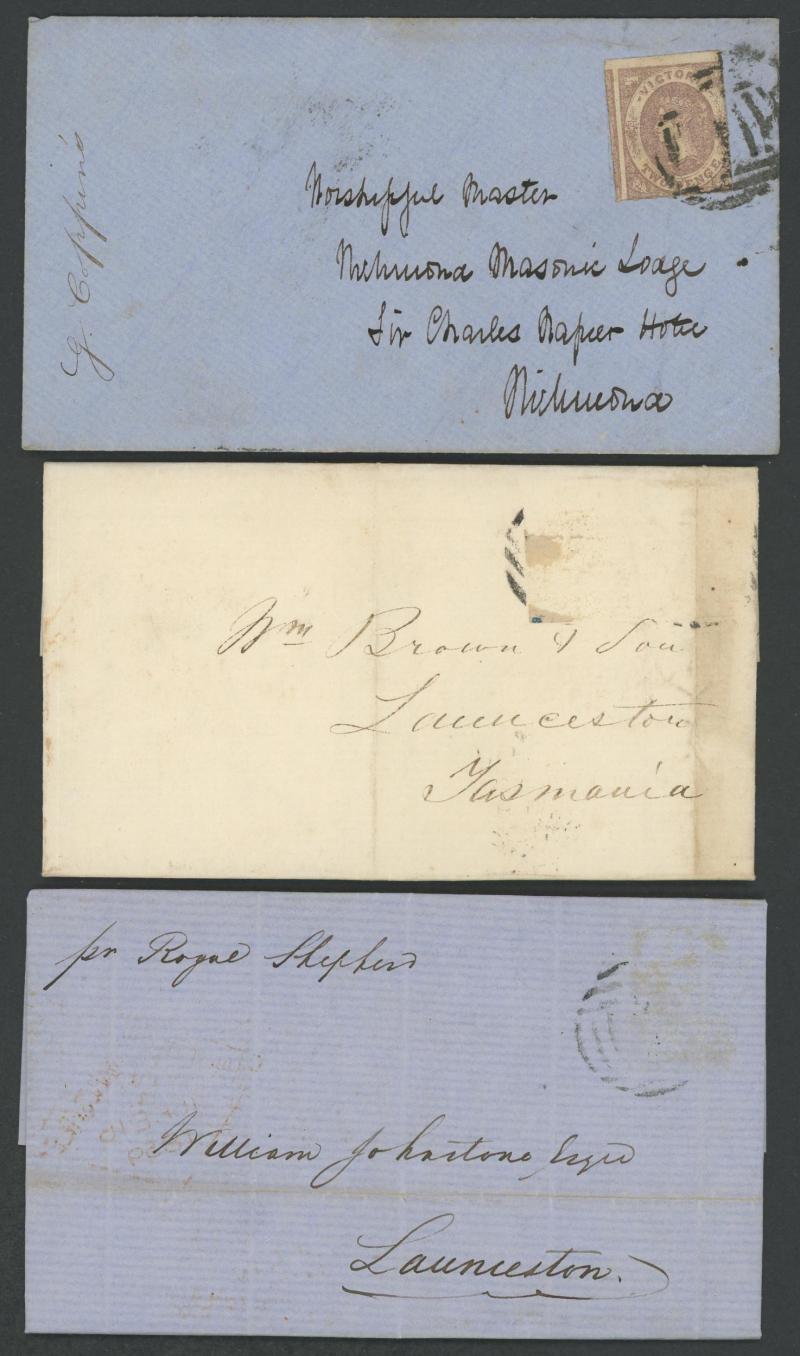 VICTORIA
TWO PENCE
G. Coppin's
Worshipful Master
Richmond Masonic Lodge
Sir Charles Napier Hotel
Richmond
Wm Brown & Son
Launceston
Tasmania
pr Royal Shepherd
William Johnstone Esqre
Launceston.